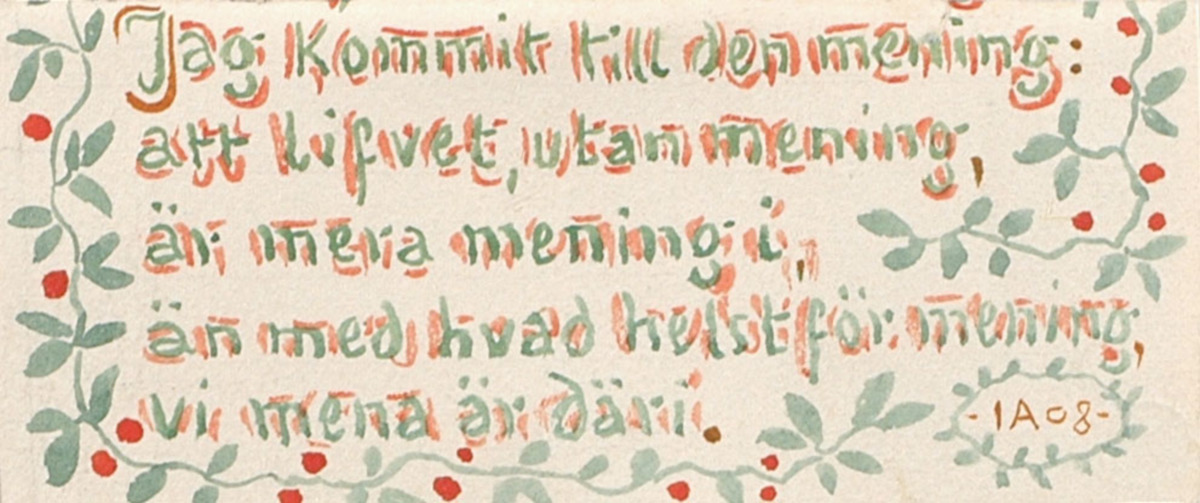 Jag kommit till den mening:
att lifvet, utan mening,
är mera mening i,
än med hvad helst för mening,
vi mena är däri.
-1A08-